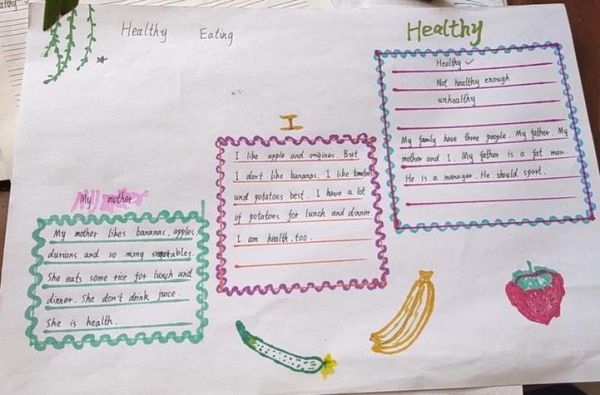 Healthy Eating
Healthy
Healthy ✓
Not healthy enough
unhealthy
My family have three people. My father. My
mother and I. My father is a fat man.
He is a manager. He should sport.
I
I like apple and origines. But
I don't like bananas. I like tomatoes
and potatoes best. I have a lot
of potatoes for lunch and dinner
I am health, too.
My mother
My mother likes bananas, apples,
durians and so many vegetables.
She eats some rice for lunch and
dinner. She don't drink juice.
She is health.